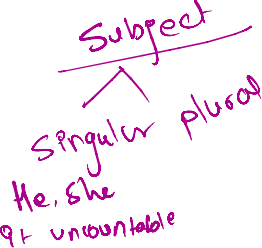 Subject
Singular plural
He, She
It uncountable